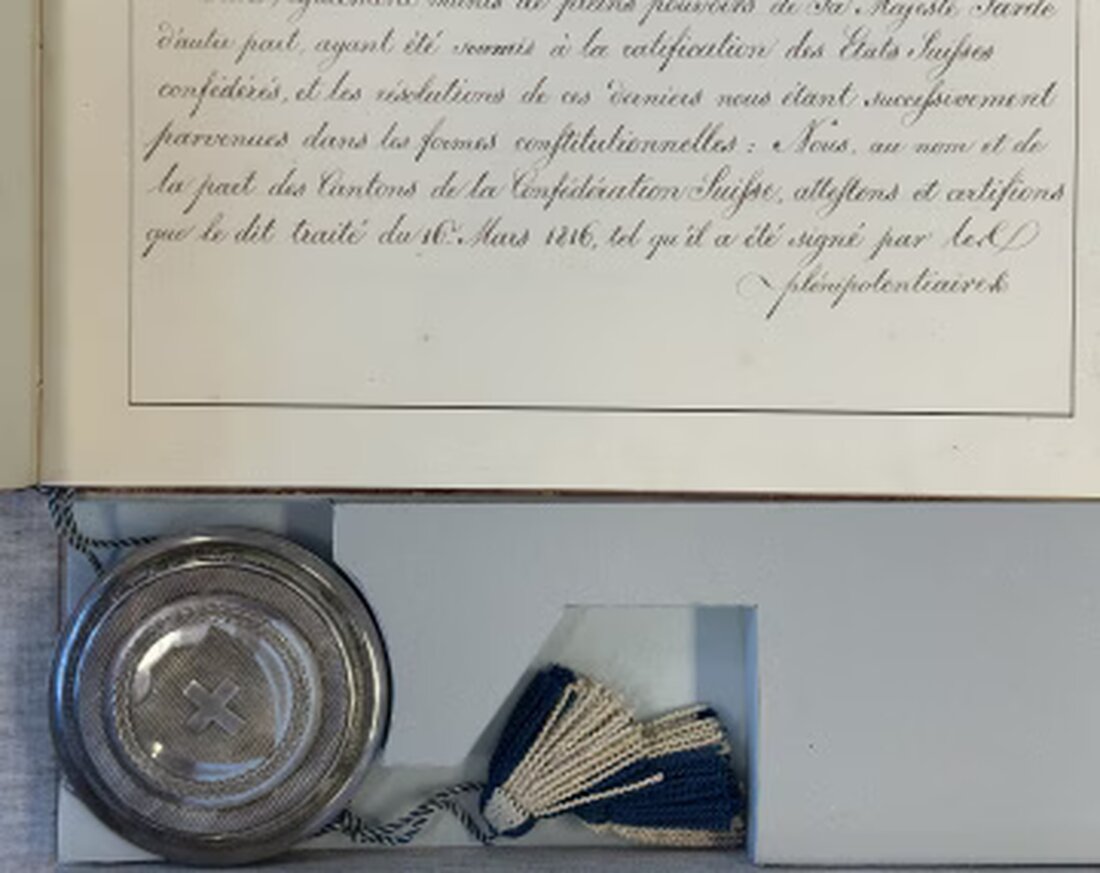 également munis de pleins pouvoirs de Sa Majesté Sarde
d'autre part, ayant été soumis à la ratification des Etats Suisses
confédérés, et les résolutions de ces derniers nous étant successivement
parvenues dans les formes constitutionnelles : Nous, au nom et de
la part des Cantons de la Confédération Suisse, attestons et certifions
que le dit traité du 16 Mars 1816, tel qu'il a été signé par les
plénipotentiaires